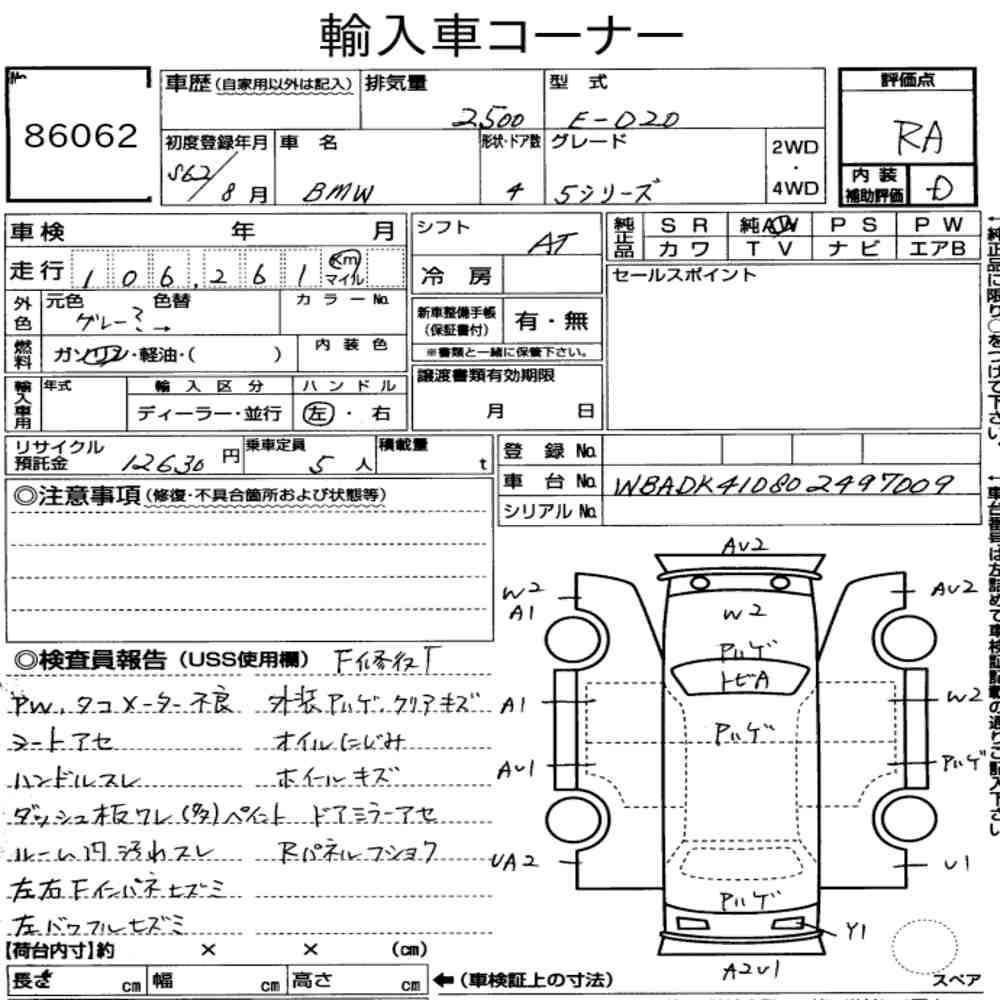 輸入車コーナー
No. 86062
車歴(自家用以外は記入) 排気量 2500 型式 E-D20 評価点 RA
初度登録年月 S62/8月 車名 BMW 形状・ドア数 4 グレード 5シリーズ 2WD・4WD
内装補助評価 D
車検 年 月 シフト AT 純正品 SR 純AW PS PW
カワ TV ナビ エアB
走行 106,261 Km マイル 冷房 セールスポイント
外色 元色 グレー 色替 ミ→ カラーNo.
新車整備手帳(保証書付) 有・無
燃料 ガソリン・軽油・( ) 内装色
※書類と一緒に保管下さい。
輸入車用 年式 輸入区分 ディーラー・並行 ハンドル 左・右
譲渡書類有効期限 月 日
←純正品に限り○をつけて下さい。
リサイクル預託金 12630円 乗車定員 5人 積載量 t
登録No.
車台No. WBADK410802497009
シリアルNo.
←車台番号は左詰めで車検証記載の通りご記入下さい
◎注意事項(修復・不具合箇所および状態等)
◎検査員報告(USS使用欄) F修復T
PW、タコメーター不良 外装アルゲ、クリアキズ
シートアセ オイルにじみ
ハンドルスレ ホイールキズ
ダッシュ板ワレ(多)ペイント ドアミラーアセ
ルーム内汚れスレ Rパネルフショク
左右Fインパネヒズミ
左バッフルヒズミ
AU2
W2
A1
AU2
W2
アルゲ
トビA
A1
W2
アルゲ
AU1
アルゲ
UA2
U1
アルゲ
Y1
A2U1
スペア
【荷台内寸】約 × × (cm)
長さ cm 幅 cm 高さ cm ←(車検証上の寸法)